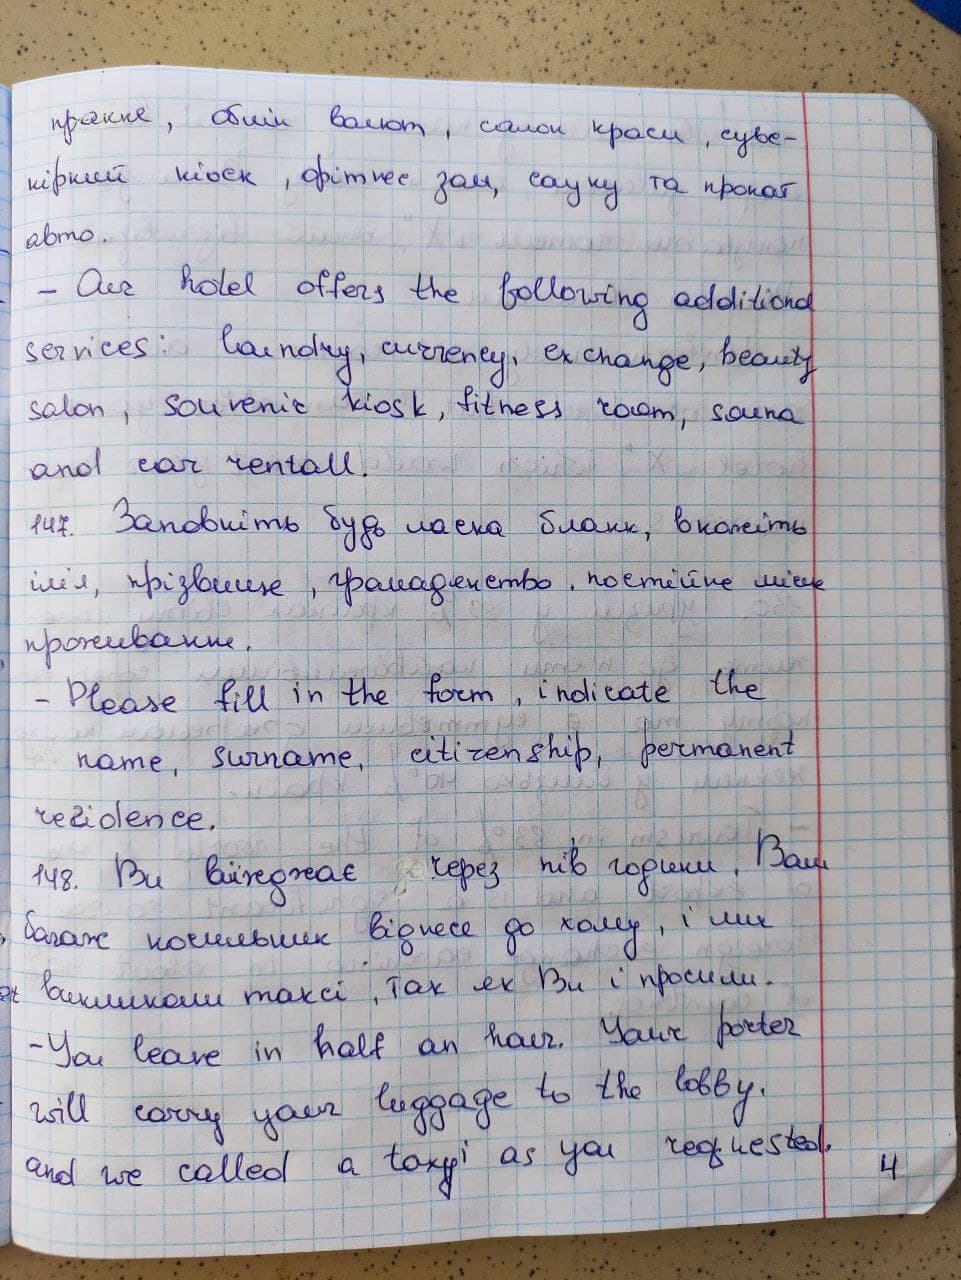 прання, обмін валют, салон краси, суве-
нірний кіоск, фітнес зал, сауну та прокат
авто.
- Our hotel offers the following additional
services: laundry, currency, exchange, beauty
salon, souvenir kiosk, fitness room, sauna
and car rentall.
147. Заповніть будь ласка бланк, вкажіть
ім'я, прізвище, громадянство, постійне місце
проживання.
- Please fill in the form, indicate the
name, surname, citizenship, permanent
residence.
148. Ви виїжджає через пів години. Ваш
багаж носильник віднесе до холу, і ми
викликали таксі, так як Ви і просили.
- You leave in half an hour. Your porter
will carry your luggage to the lobby.
and we called a taxyi as you requested.
4